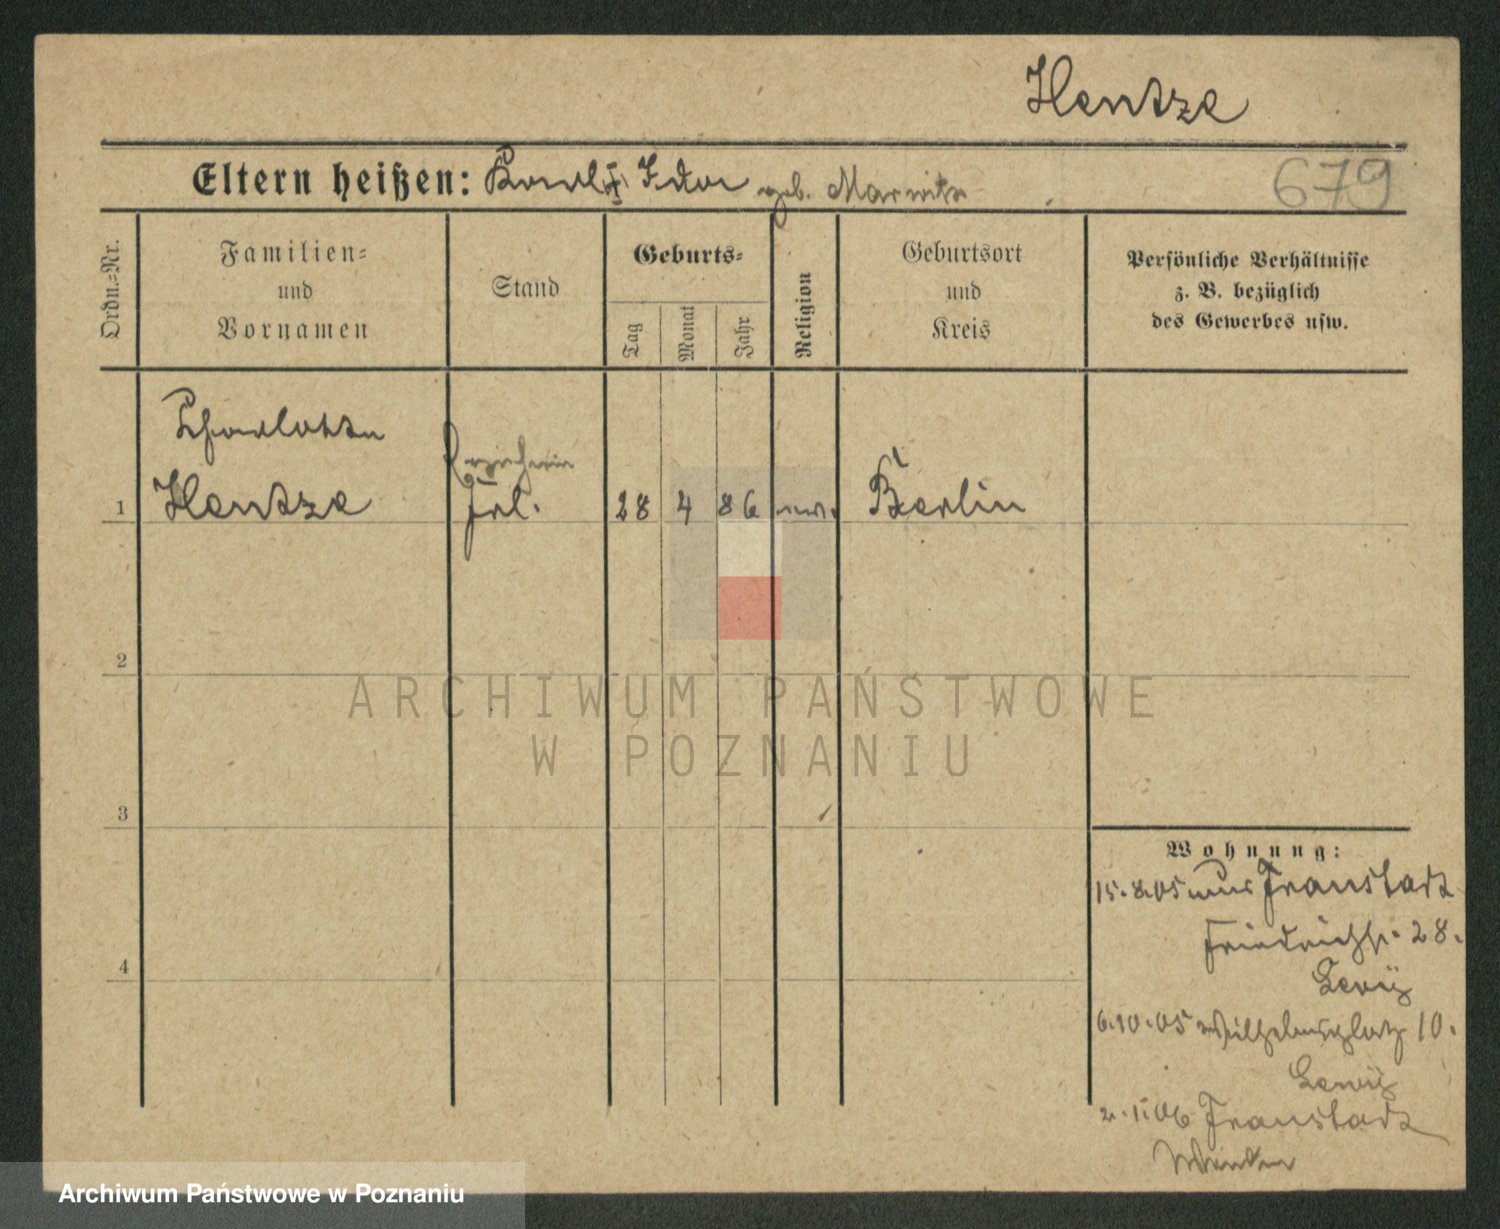 Hentze
679
Eltern heißen: Paul Ida geb. Marwitz
Ordn.=Nr.
Familien=
und
Vornamen
Stand
Geburts=
Tag
Monat
Jahr
Religion
Geburtsort
und
Kreis
Persönliche Verhältnisse
z. B. bezüglich
des Gewerbes usw.
Charlotte
1 Hentze Frl. 28 4 86 ev. Berlin
2
ARCHIWUM PAŃSTWOWE
W POZNANIU
3
Wohnung:
15.8.05 aus Fraustadt
Friedrichstr. 28.
Levy
4
6.10.05 Wilhelmsplatz 10.
Lewy
2.1.06 Fraustadt
Archiwum Państwowe w Poznaniu